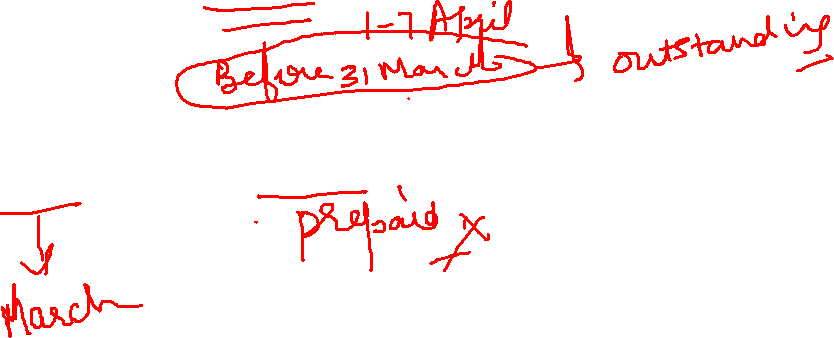 1-7 April
Before 31 March outstanding
prepaid x
March